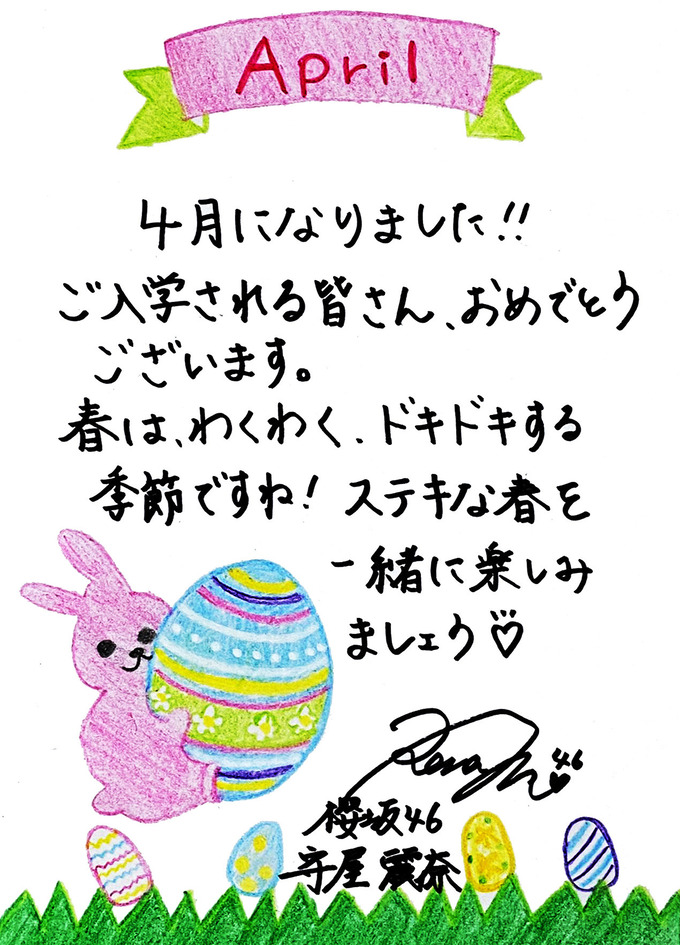 April
4月になりました!!
ご入学される皆さん、おめでとう
ございます。
春は、わくわく、ドキドキする
季節ですね! ステキな春を
一緒に楽しみ
ましょう♡
46
櫻坂46
守屋麗奈